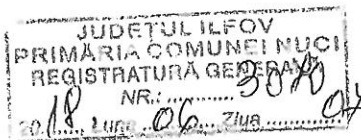 JUDEȚUL ILFOV
PRIMĂRIA COMUNEI NUCI
REGISTRATURĂ GENERALĂ
NR.: .......... 3070
2018. Luna .. 06 ... Ziua .......... 04